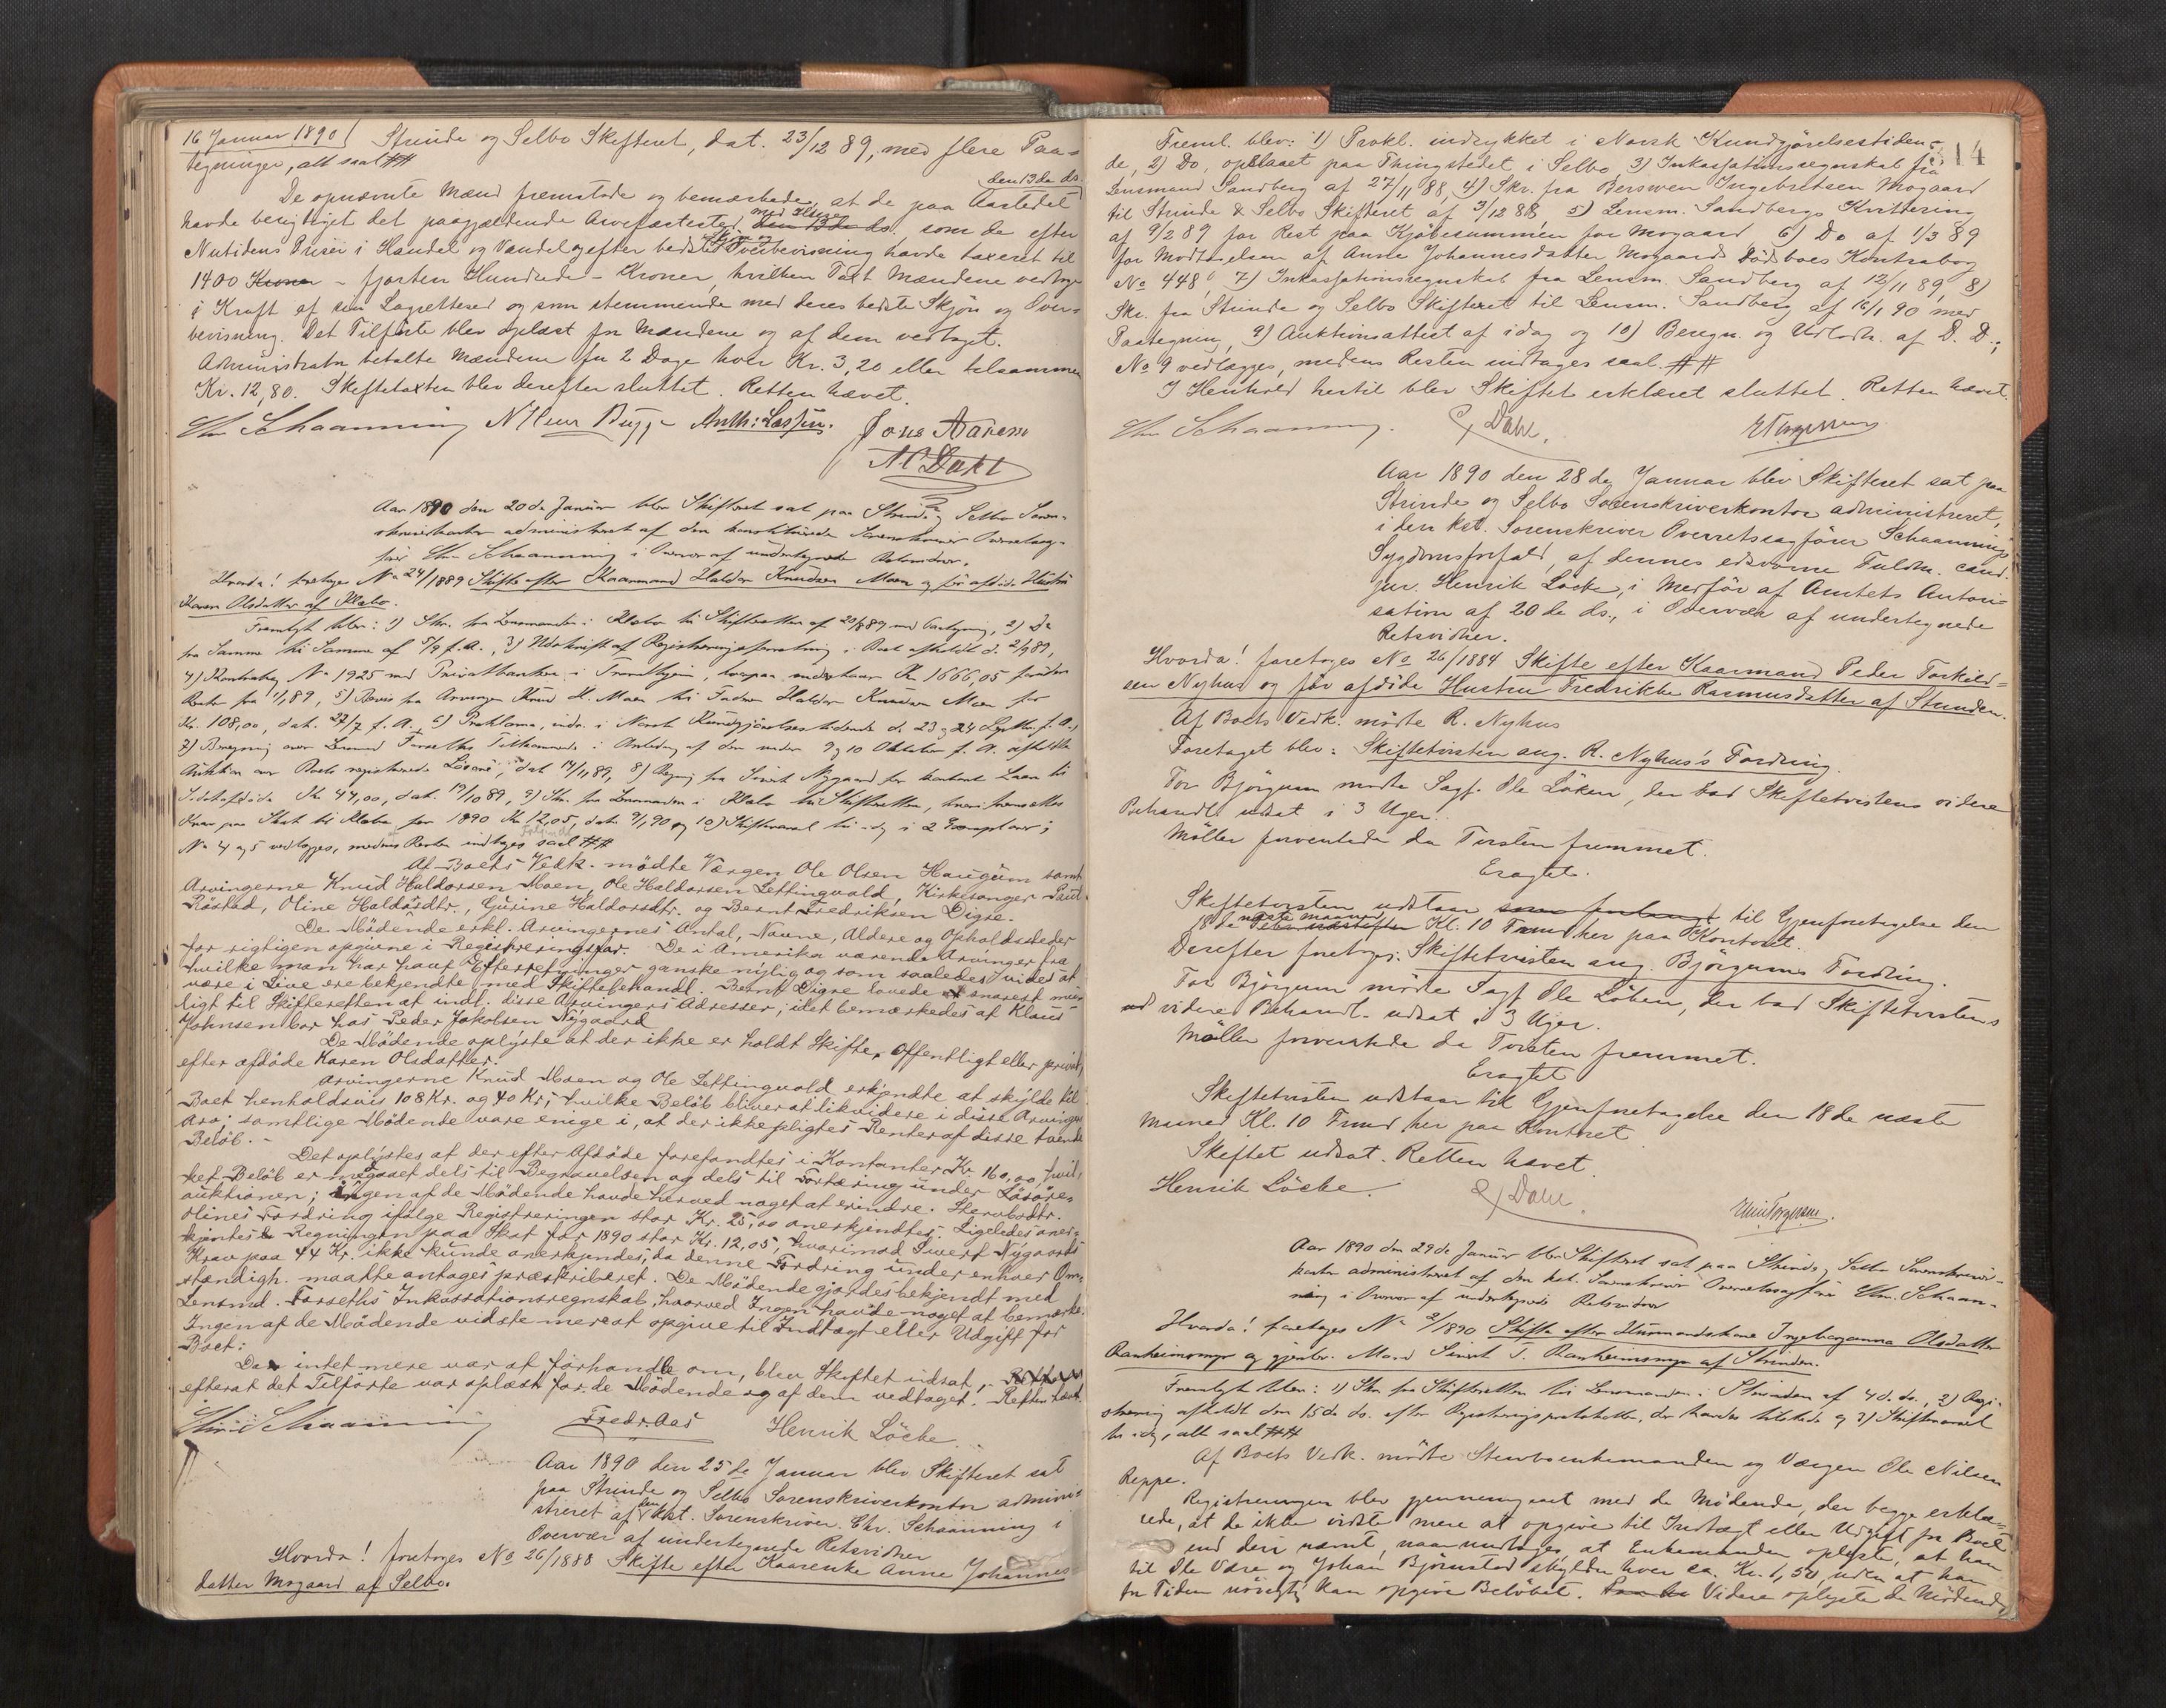 16 Januar 1890 Strinde og Selbo Skifteret, dat. 23/12 89, med flere Paa-
tegninger, alt saal##
De opnævnte Mænd fremstode og bemærkede, at de paa Aastedet den 13de ds.
havde besigtiget det paagjældende Arvefæstested med Huse som de efter
Nutidens Priser i Handel og Vandel og efter bedste Skjøn og Overbevisning havde taxeret til
1400 Kroner - fjorten Hundrede - Kroner, hvilken Taxt Mændene vedtoge
i Kraft af sin Lagrettesed og som stemmende med deres bedste Skjøn og Over-
bevisning. Det Tilførte blev oplæst for Mændene og af dem vedtaget.
Administrator betalte Mændene for 2 Dage hver Kr. 3,20 eller tilsammen
Kr. 12,80. Skiftetaxten blev derefter sluttet. Retten hævet.
Chr Schaanning Anth: Lassen. Jons Aarem
A C Dahl
Aar 1890 den 20de Januar blev Skifteret sat paa Strinde og Selbo Soren-
skriverkontor administreret af den konstituerede Sorenskriver Overretssag-
fører Chr. Schaanning i Overvær af undertegnede Retsvidner.
Hvorda! foretoges No 24/1889 Skifte efter Kaarmand Haldor Knudsen Moen og før afdøde Hustru
Karen Olsdatter af Klæbo.
Fremlagt blev: 1) Skr. fra Lensmanden i Klæbo til Skifteretten af 20/8 89 med Paategning, 2) Do
fra Samme til Samme af 5/9 f. A., 3) Udskrift af Registreringsforretning i Boet afholdt d. 2/9 89,
4) Kontrabog No 1925 med Privatbanken i Trondhjem, hvorpaa indestaar Kr. 1666,05 foruden
Renter fra 1/1 89, 5) Bevis fra Arvingen Knud H. Moen til Faderen Haldor Knudsen Moen for
Kr. 108,00, dat. 27/7 f. A., 6) Proklama, indr. i Norsk Kundgjørelsestidende d. 23 og 24 Septbr. f. A.,
7) Beregning over Lensmand Forseths Tilkommende i Anledning af den under 9 og 10 Oktober f. A. afholdte
Auktion over Boets registrerede Løsøre, dat 14/11 89, 8) Regning fra Sivert Nygaard for kontant Laan til
Sidstafdøde Kr 44,00, dat. 19/10 89, 9) Skr. fra Lensmanden i Klæbo til Skifteretten, hvori fremsættes
Krav paa Skat til Klæbo for 1890 Kr 12,05, dat. 9/1 90 og 10) Skiftevarsel til idag i 2 Exemplarer;
No 4 og 5 vedlægges, medens Resten indtages saal ##
Af Boets Vedk. mødte Værgen Ole Olsen Haugum samt
Arvingerne Knud Haldorsen Moen, Ole Haldorsen Lettingvold, Kirkesanger Paul
Røstad, Oline Haldorsdtr., Gurine Haldorsdtr. og Bernt Fredriksen Digre.
De Mødende erkl. Arvingernes Antal, Navne, Aldere og Opholdssteder
for rigtigen opgivne i Registreringsfor. De i Amerika værende Arvinger fra
hvilke man har havt Efterretninger ganske nylig og som saaledes vides at
være i Live ere bekjendte med Skiftebehandl. Bernt Digre lovede snarest mu-
ligt til Skifteretten at indl. disse Arvingers Adresser; idet bemærkedes at Klaus
Johnsen bor hos Peder Jakobsen Nygaard
De Mødende oplyste at der ikke er holdt Skifte, Offentligt eller privat,
efter afdøde Karen Olsdatter.
Arvingerne Knud Moen og Ole Lettingvold erkjendte at skylde til
Boet henholdsvis 108 Kr. og 40 Kr; hvilke Beløb bliver at likvidere i disse Arvingers
Arv; samtlige Mødende vare enige i, at der ikke pligtes Renter af disse tvende
Beløb. -
Det oplystes at der efter Afdøde forefandtes i Kontanter Kr. 160,00, hvil-
ket Beløb er medgaaet dels til Begravelsen og dels til Fortæring under Løsøre-
auktionen; ingen af de Mødende havde herved noget at erindre. Stervbodtr.
Olines Fordring ifølge Registreringen stor Kr. 25,00 anerkjendtes. Ligeledes aner-
kjentes Regningen paa Skat for 1890 stor Kr. 12,05, hvorimod Sivert Nygaards
Krav paa 44 Kr. ikke kunde anerkjendes, da denne Fordring under enhver Om-
stændigh. maatte antages præskriberet. De Mødende gjordes bekjendt med
Lensmd. Forseths Inkassationsregnskab, hvorved Ingen havde noget at bemærke.
Ingen af de Mødende vidste mere at opgive til Indtægt eller Udgift for
Boet:
Da intet mere var at forhandle om, blev Skiftet udsat,
efterat det Tilførte var oplæst for de Mødende og af dem vedtaget. Retten hævet.
Chr. Schaanning Fredr. Aas Henrik Löcke
Aar 1890 den 25de Januar blev Skifteret sat
paa Strinde og Selbo Sorenskriverkontor admini-
streret af den kst. Sorenskriver Chr. Schaanning i
Overvær af undertegnede Retsvidner
Hvorda! foretoges No 26/1888 Skifte efter Kaarenke Anne Johannes-
datter Mogaard af Selbo.
314
Freml. blev: 1) Prokl. indrykket i Norsk Kundgjörelsestiden-
de, 2) Do, opslaaet paa Thingstedet i Selbo 3) Inkassationsregnskab fra
Lensmand Sandberg af 27/11 88, 4) Skr. fra Berswen Ingebretsen Mogaard
til Strinde & Selbo Skifteret af 3/12 88, 5) Lensm. Sandbergs Kvittering
af 9/2 89 for Rest paa Kjøbesummen for Mogaard 6) Do af 1/3 89
for Modtagelsen af Anne Johannesdatter Mogaards Dödsboes Kontrabog
No 448, 7) Inkassationsregnskab fra Lensm. Sandberg af 12/11 89, 8)
Skr. fra Strinde og Selbo Skifteret til Lensm. Sandberg af 16/1 90 med
Paategning, 9) Auktionsattest af idag og 10) Beregn. og Udlodn. af D. D.;
No 9 vedlægges, medens Resten indtages saal. ##
I Henhold hertil blev Skiftet erklæret sluttet. Retten hævet.
Chr Schaanning. Dahl. E Torgersen
Aar 1890 den 28de Januar blev Skifteret sat paa
Strinde og Selbo Sorenskriverkontor administreret,
i den kst. Sorenskriver Overretssagfører Schaannings
Sygdomsforfald, af dennes edsvorne Fuldm. cand.
jur. Henrik Löcke, i Medför af Amtets Autori-
sation af 20de ds., i Overvær af undertegnede
Retsvidner.
Hvorda! foretoges No 26/1884 Skifte efter Kaarmand Peder Torkild-
sen Nyhus og før afdöde Hustru Fredrikke Rasmusdatter af Strinden.
Af Boets Vedk. mödte R. Nyhus
Foretaget blev: Skiftetvisten ang. R. Nyhus's Fordring.
For Björgum mødte Sagf. Ole Löken, der bad Skiftetvistens videre
Behandl. udsat i 3 Uger.
Möller forventede da Tvisten fremmet.
Eragtet.
Skiftetvisten udstaar til Gjenforetagelse den
18de næste maaned Kl. 10 Formd her paa Kontoret.
Derefter foretoges: Skiftetvisten ang. Björgums Fordring.
For Björgum mödte Sagf. Ole Löken, der bad Skiftetvistens
videre Behandl. udsat i 3 Uger.
Möller forventede da Tvisten fremmet.
Eragtet
Skiftetvisten udstaar til Gjenforetagelse den 18de næste
Maaned Kl. 10 Formd her paa Kontoret
Skiftet udsat. Retten hævet.
Henrik Löcke. Dahl.
Aar 1890 den 29de Januar blev Skifteret sat paa Strinde og Selbo Sorenskriver-
kontor administreret af den kst. Sorenskriver Overretssagfører Chr. Schaan-
ning i Overvær af undertegnede Retsvidner
Hvorda! foretoges No 2/1890 Skifte efter Husmandskone Ingeborganna Olsdatter
Ranheimsmyr og gjenlev. Mand Sivert J. Ranheimsmyr af Strinden.
Fremlagt blev: 1) Skr. fra Skifteretten til Lensmanden i Strinden af 4de ds., 2) Regi-
strering afholdt den 15de ds. efter Registreringsprotokollen, der havdes tilstede og 3) Skiftevarsel
til idag, alt saal ##
Af Boets Vedk. mödte Stervboenkemanden og Værgen Ole Nilsen
Reppe.
Registreringen blev gjennemgaaet med de Mödende, der begge erklæ-
rede, at de ikke vidste mere at opgive til Indtægt eller Udgift for Boet
end deri nævnt, naar undtages, at Enkemanden oplyste, at han
til Ole Være og Johan Björnstad skylder hver ca. Kr. 1,50, uden at han
for Tiden nöiagtig kan opgive Belöbet. Videre oplyste de Mödende,